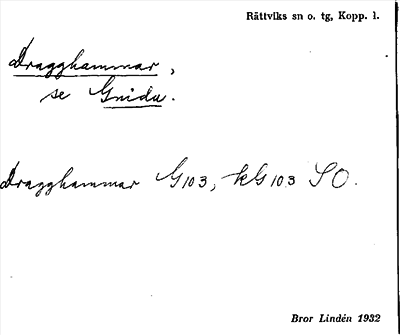 Rättviks sn o. tg, Kopp. l.
Dragghammar,
se Gnidu.
Dragghammar G 103, kG 103 SO.
Bror Lindén 1932